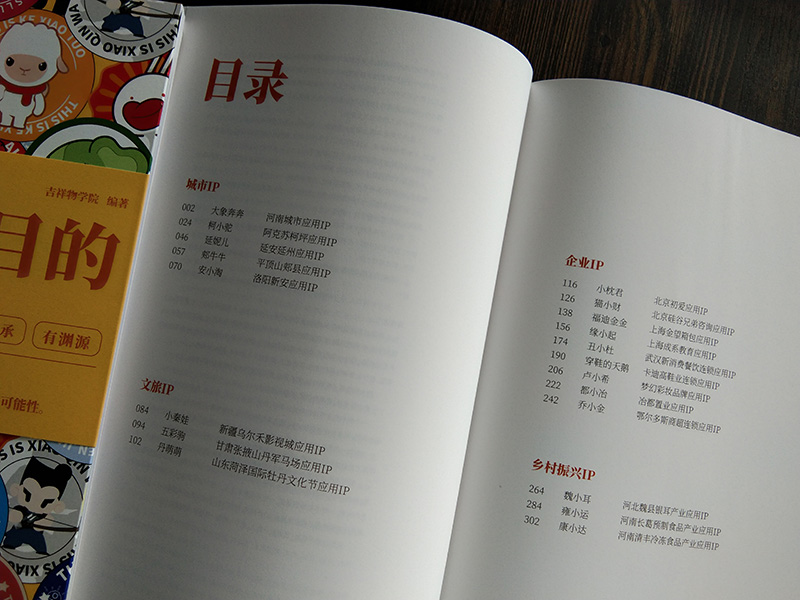 THIS IS XIAO QIN WA
THIS IS KE XIAO TUO
吉祥物学院 编著
目的
承
有渊源
可能性。
目录
城市IP
002 大象奔奔 河南城市应用IP
024 柯小驼 阿克苏柯坪应用IP
046 延妮儿 延安延州应用IP
057 郏牛牛 平顶山郏县应用IP
070 安小淘 洛阳新安应用IP
文旅IP
084 小秦娃 新疆乌尔禾影视城应用IP
094 五彩驹 甘肃张掖山丹军马场应用IP
102 丹萌萌 山东菏泽国际牡丹文化节应用IP
企业IP
116 小枕君 北京初爱应用IP
126 猫小财 北京硅谷兄弟咨询应用IP
138 福迪金金 上海金望箱包应用IP
156 缘小起 上海成系教育应用IP
174 丑小杜 武汉新消费餐饮连锁应用IP
190 穿鞋的天鹅 卡迪高鞋业连锁应用IP
206 卢小希 梦幻彩妆品牌应用IP
222 都小冶 冶都置业应用IP
242 乔小金 鄂尔多斯商超连锁应用IP
乡村振兴IP
264 魏小耳 河北魏县银耳产业应用IP
284 雍小运 河南长葛预制食品产业应用IP
302 康小达 河南清丰冷冻食品产业应用IP